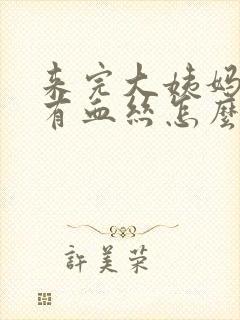 来完大姨妈
有血丝怎麼
許美荣